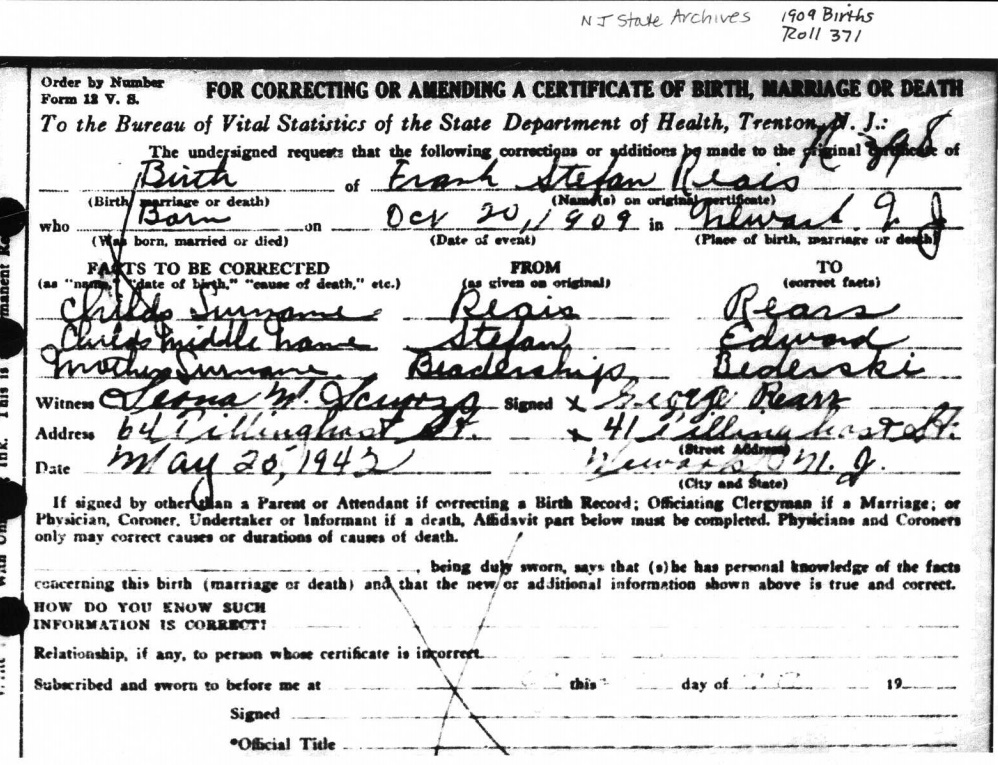 NJ State Archives 1909 Births
Roll 371
Order by Number
Form 12 V. S.
FOR CORRECTING OR AMENDING A CERTIFICATE OF BIRTH, MARRIAGE OR DEATH
To the Bureau of Vital Statistics of the State Department of Health, Trenton, N. J.:
The undersigned requests that the following corrections or additions be made to the original certificate of
Birth of Frank Stefan Regis
(Birth, marriage or death) (Name(s) on original certificate)
who Born on Oct 20, 1909 in Newark N. J
(Was born, married or died) (Date of event) (Place of birth, marriage or death)
FACTS TO BE CORRECTED FROM TO
(as "name," "date of birth," "cause of death," etc.) (as given on original) (correct facts)
Childs Surname Regis Rears
Childs middle name Stefan Edward
Mothers Surname Beaderships Bederski
Witness Leona M. Signed x George Rears
Address 64 Tillinghast St. x 41 Tillinghast St.
(Street Address)
Date May 25, 1942 Newark N. J.
(City and State)
If signed by other than a Parent or Attendant if correcting a Birth Record; Officiating Clergyman if a Marriage; or
Physician, Coroner, Undertaker or Informant if a death, Affidavit part below must be completed. Physicians and Coroners
only may correct causes or durations of causes of death.
, being duly sworn, says that (s)he has personal knowledge of the facts
concerning this birth (marriage or death) and that the new or additional information shown above is true and correct.
HOW DO YOU KNOW SUCH
INFORMATION IS CORRECT?
Relationship, if any, to person whose certificate is incorrect
Subscribed and sworn to before me at this day of 19
Signed
*Official Title